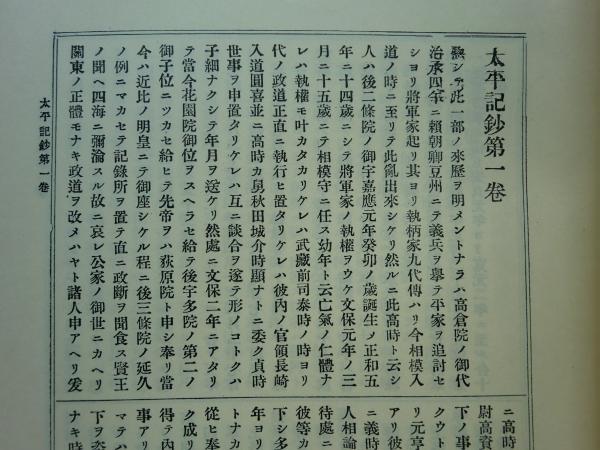 太平記鈔第一卷
夥シテ此一部ノ來歷ヲ明メントナラハ高倉院ノ御代
治承四年ニ賴朝卿豆州ニテ義兵ヲ擧テ平家ヲ追討セ
シヨリ將軍家起リ其ヨリ執柄家九代傳ハリ今相模入
道ノ時ニ至リテ此亂出來シケリ然ルニ此高時ト云シ
人ハ後二條院ノ御宇嘉應元年癸卯ノ歲誕生〆正和五
年ニ十四歲ニシテ將軍家ノ執權ヲウケ文保元年ノ三
月ニ十五歲ニテ相模守ニ任ス幼年ト云亡氣ノ仁體ナ
レハ執權モ叶カタカリケレハ武藏前司泰時ノ時ヨリ
代ノ政道正直ニ執行ヒ置タリケレハ彼內ノ官領長崎
入道圓喜並ニ高時カ舅秋田城介時顯ナトニ委ク貞時
世事ヲ申置タリケレハ互ニ談合ヲ遂テ形ノコトクハ
子細ナクシテ年月ヲ送ケリ然處ニ文保二年ニアタリ
テ當今花園院御位ヲスヘラセ給テ後宇多院ノ第二ノ
御子位ニツカセ給ヒテ先帝ヲハ萩原院ト申シ奉リ當
今ハ近比ノ明皇ニテ御座シケル程ニ後三條院ノ延久
ノ例ニマカセテ記錄所ヲ置テ直ニ政斷ヲ聞食ス賢王
ノ聞ヘ四海ニ彌淪スル故ニ哀レ公家ノ御世ニカヘリ
關東ノ正體モナキ政道ヲ改メハヤト諸人申アヘリ爰
太平記鈔第一卷
ニ高時
尉高資
下ノ事
クウト
リ元亨
アリ彼
ニ義時
人相論
待處ニ
彼等カ
下シ多
年ヨリ
トナカ
從ヒ奉
ク成リ
得テ內
事アリ
マテハ
下ヲ
ナキ時